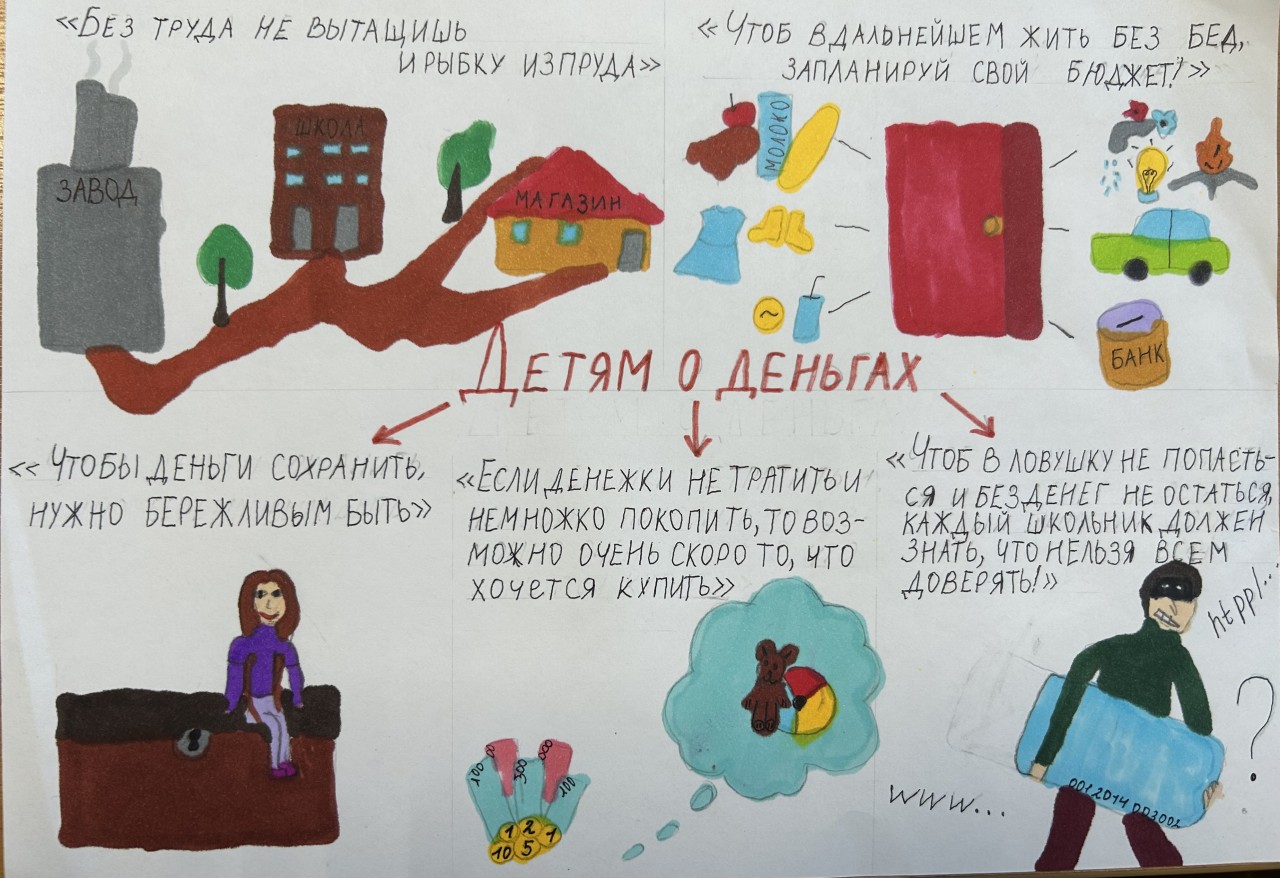 «Без труда не вытащишь
и рыбку из пруда»
ЗАВОД
ШКОЛА
МАГАЗИН
«Чтоб в дальнейшем жить без бед,
запланируй свой бюджет!»
МОЛОКО
БАНК
Детям о деньгах
«Чтобы деньги сохранить,
нужно бережливым быть»
«Если денежки не тратить и
немножко покопить, то воз-
можно очень скоро то, что
хочется купить»
100
500
100
1 2 1
10 5
«Чтоб в ловушку не попасть-
ся и без денег не остаться,
каждый школьник должен
знать, что нельзя всем
доверять!»
htpp/:..
?
www...
001 2014 003001